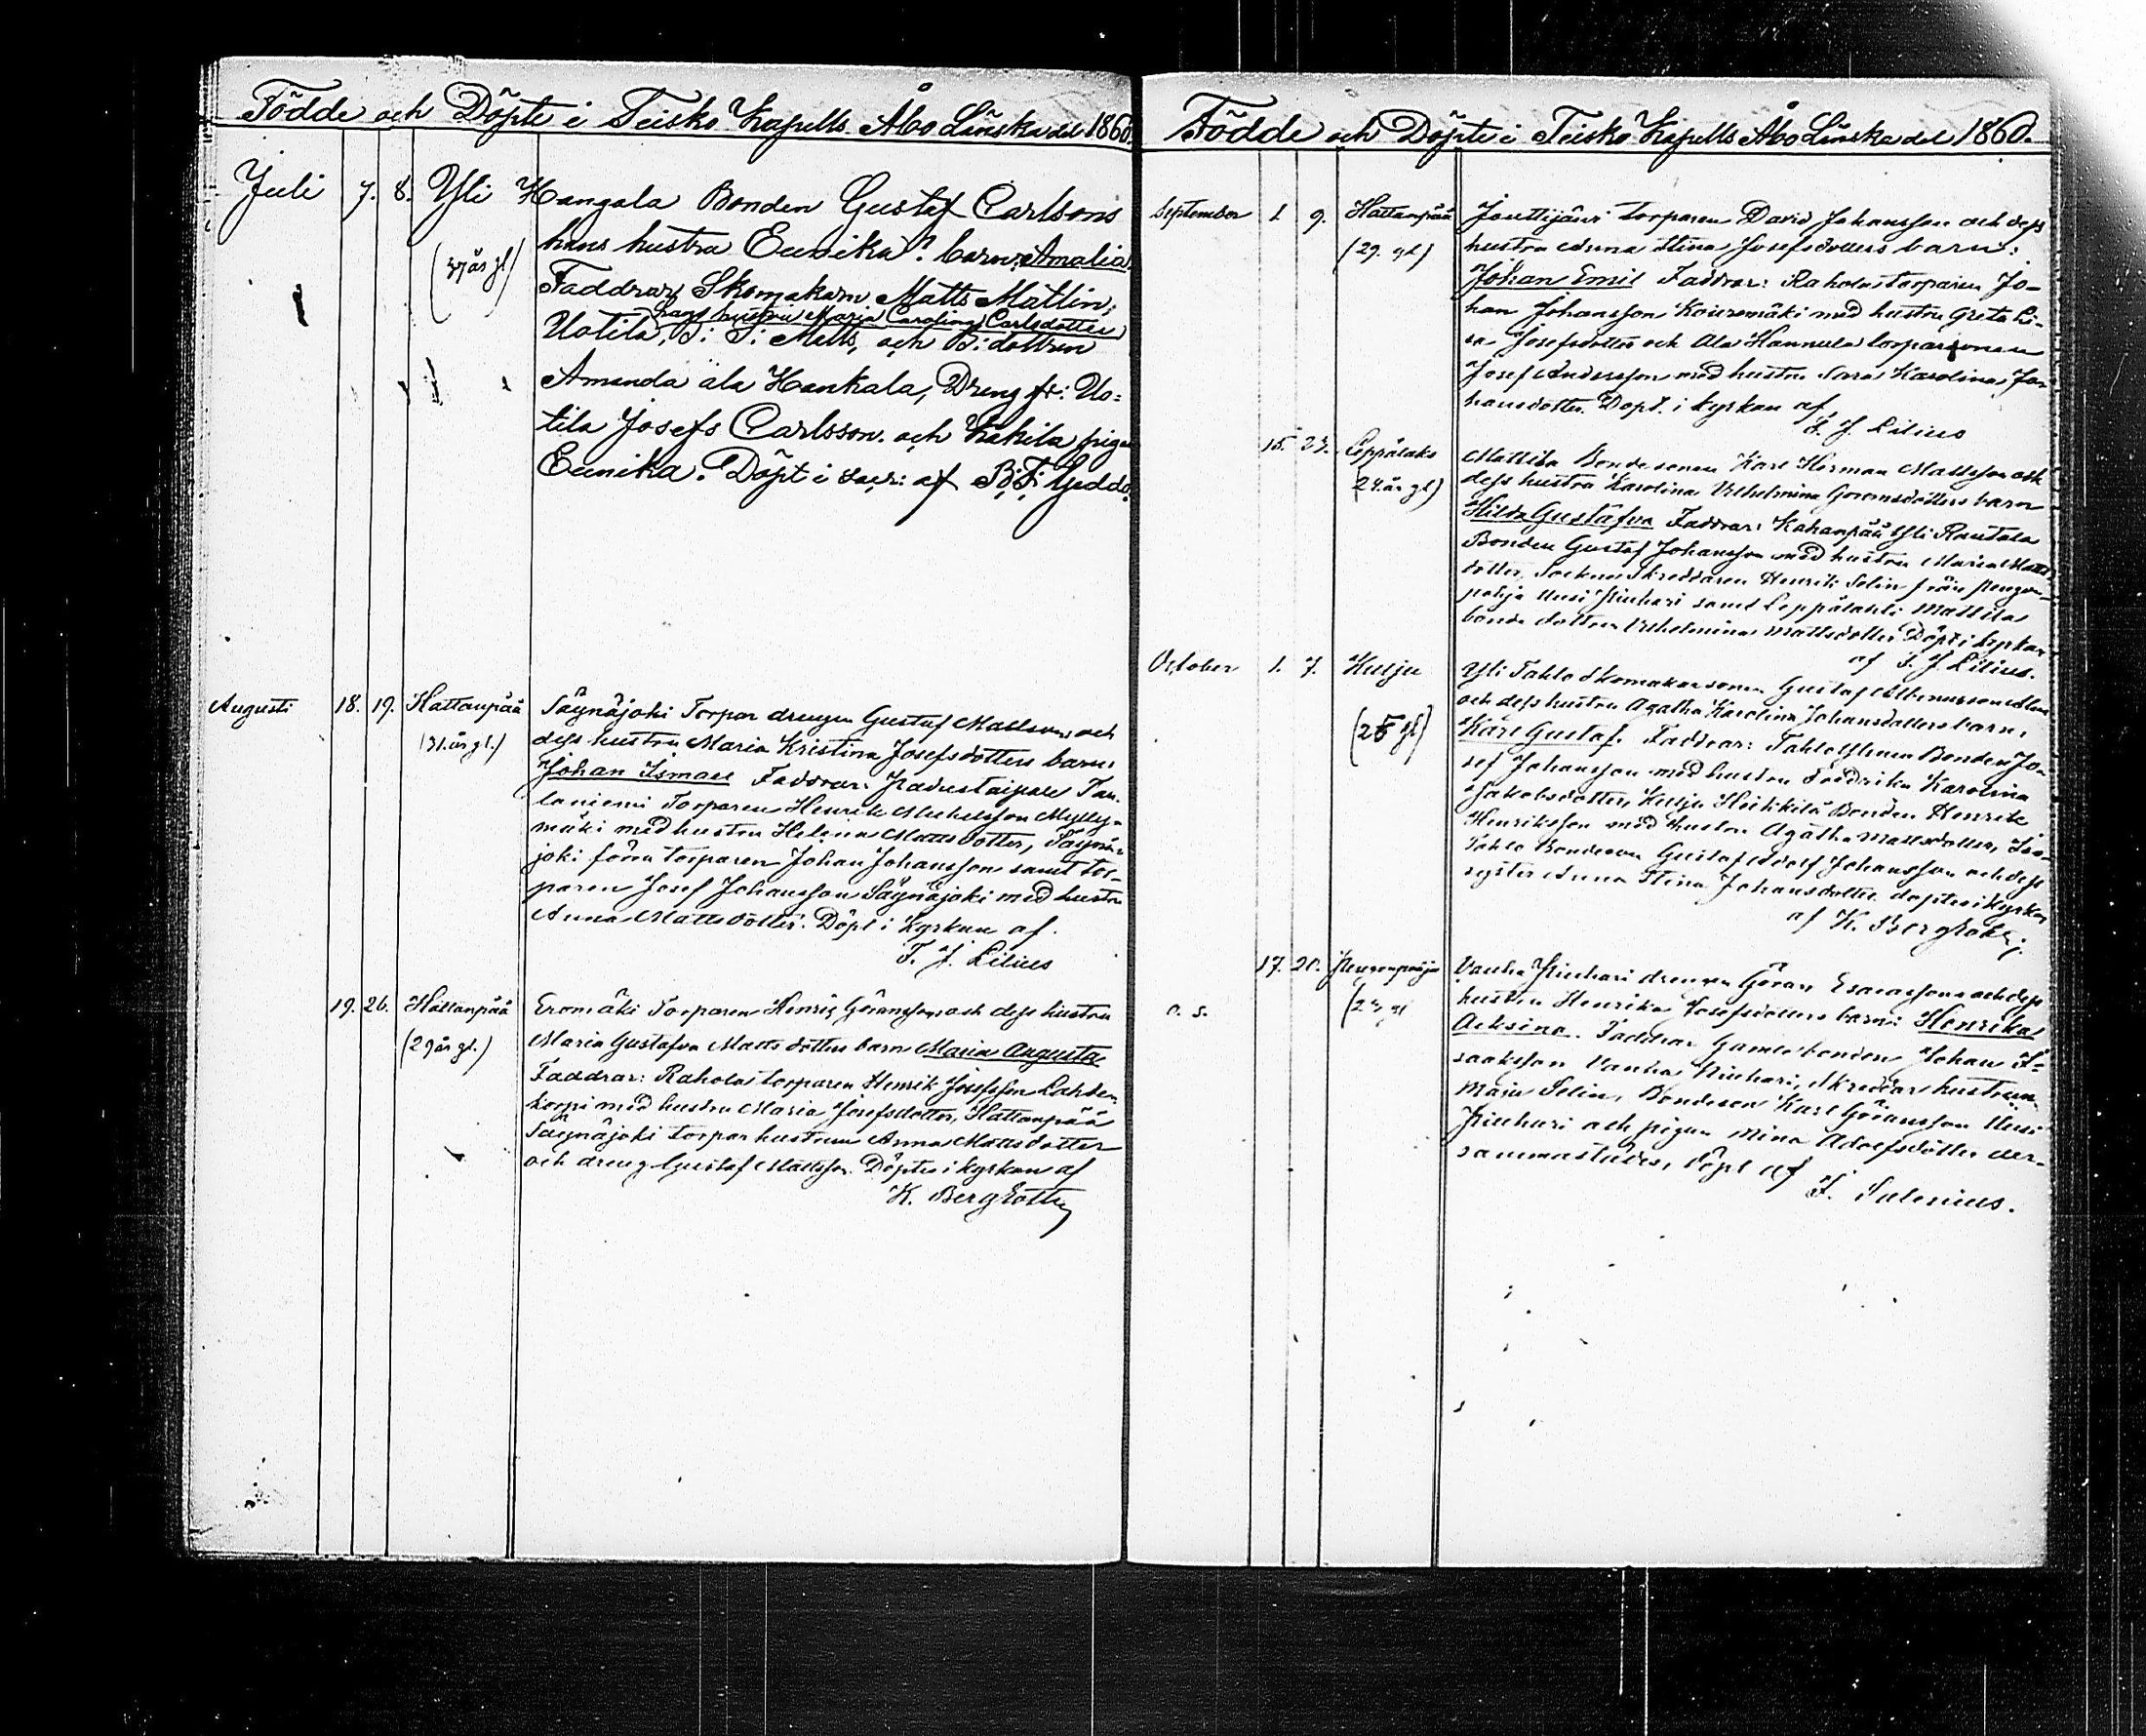 Födde och Döpte i Teisko Kapells Åbo Länska del 1860.
Juli 7. 8. Yli Hangala Bonden Gustaf Carlsons
(37 år gl) hans hustru Eunika? barn: Amalia.
Faddrar, Skomakarn Matts Mattin;
hans hustru Maria Carolina Carlsdotter
Uotila, T: Matts, och B: dottren
Amanda ala Hankala, Dreng fr: Uo=
tila Josefs Carlsson och Kakila pigan
Eunika. Döpt i af B: F: Gedda.
Augusti 18. 19. Hattanpää Säynäjoki Torpar drengen Gustaf Mattsons och
(31. år gl.) dess hustru Maria Kristina Josefsdotters barn:
Johan Ismael Faddrar: Padustaipale Tau-
laniemi Torparen Henrik Michelsson Mylly-
mäki med hustru Helena Mattsdotter, Säynä-
joki förra torparen Johan Johansson samt tor-
paren Josef Johansson Säynäjoki med hustru
Anna Mattsdotter. Döpt i Kyrkan af
F. J. Lilius
19. 26. Hattanpää Eromäki Torparen Henrik Göransson och dess hustru
(29 år gl.) Maria Gustafva Matts dotters barn Maria Augusta
Faddrar: Rahola torparen Henrik Josefsson Lahden-
korpi med hustru Maria Josefsdotter, Hattanpää
Säynäjoki torpar hustrun Anna Mattsdotter
och dreng Gustaf Mattsson. Döptes i kyrkan af
K. Bergroth
Födde och Döpte i Teisko Kapells Åbo Länska del 1860.
September 1. 9. Hattanpää Jouttijärvi torparen David Johansson och dess
(29. gl) hustru Anna Stina Josefsdotters barn:
Johan Emil Faddrar: Rahola torparen Jo-
han Johansson Koivemäki med hustru Greta Li-
sa Josefsdotter och Ala Hannula torparsonen
Josef Andersson med hustru Sara Karolina Jo-
hansdotter. Döpt. i kyrkan af
F. J. Lilius
15. 23. Leppälaks Mattila Bonde sonen Karl Herman Mattsson och
(24. år gl) dess hustru Karolina Vilhelmina Göransdotters barn
Hilda Gustafva Faddrar: Kahanpää Yli Rautala
Bonden Gustaf Johansson med hustru Maria Matts
dotter, Sockne Skreddaren Henrik Selin från Pengon-
pohja Uusi Kiuhari samt Leppälahti Mattila
bonde dottren Vilhelmina Mattsdotter Döpt i kyrkan
af F. J. Lilius.
October 1. 7. Kulju Yli Tahlo Skomakarsonen Gustaf
(25 gl) och dess hustru Agatha Karolina Johansdotters barn:
Karl Gustaf. Faddrar: Tahlo Bonden Jo-
sef Johansson med hustru Fredrika Karolina
Jakobsdotter, Kulju Heikkilä Bonden Henrik
Henriksson med hustru Agatha Mattsdotter,
Tahlo Bondesonen Gustaf Adolf Johansson och dess
syster Anna Stina Johansdotter. döptes i kyrkan
af K. Bergroth
17. 20. Pengonpohja Vanha Kiuhari drengen Göran Esaiassons och dess
o. s. hustru Henrika Josefsdotters barn: Henrika
Acksina. Faddrar Gamle bonden Johan I-
saaksson Vanha Kiuhari, Skreddar hustrun
Maja Selin, Bondeson Karl Göransson Uusi
Kiuhari och pigan Mina Adolfsdotter der-
sammastädes, döpt af F. Salenius.